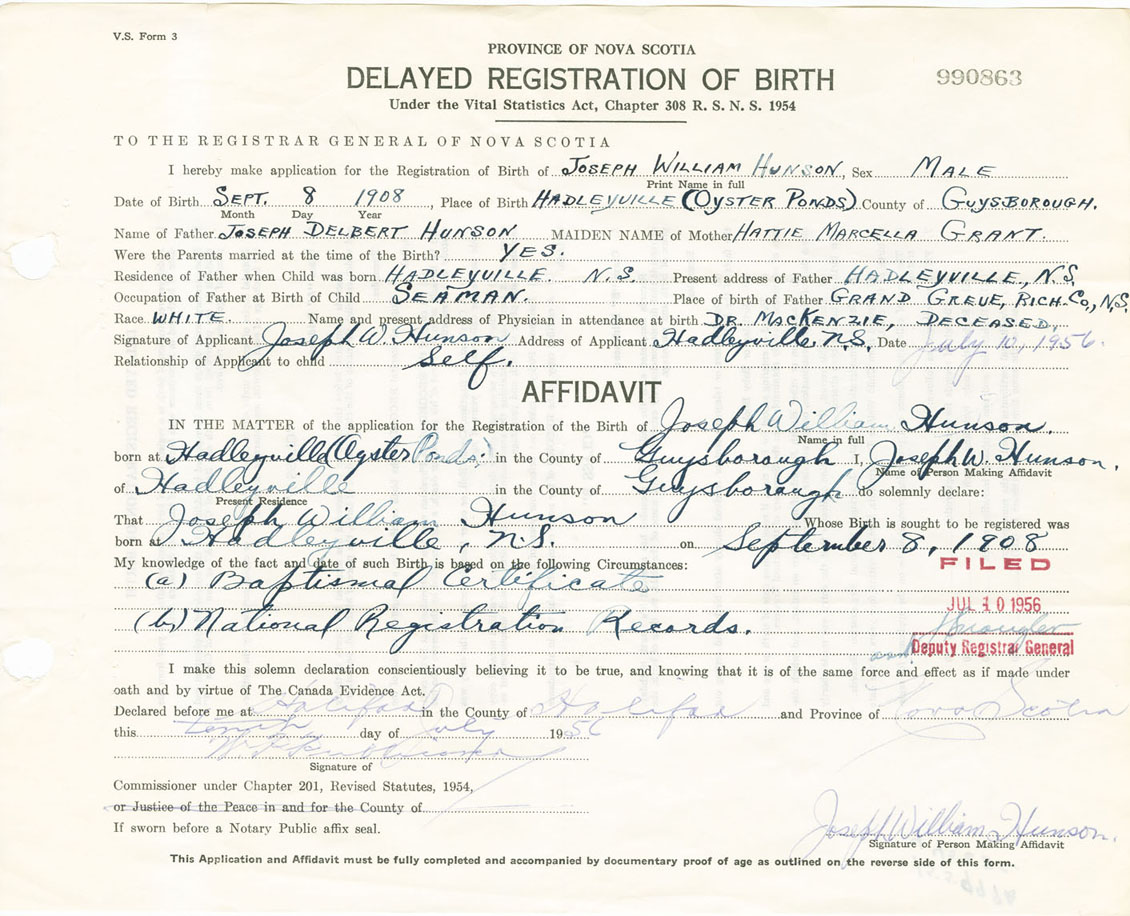 V.S. Form 3
PROVINCE OF NOVA SCOTIA
DELAYED REGISTRATION OF BIRTH
990863
Under the Vital Statistics Act, Chapter 308 R. S. N. S. 1954
TO THE REGISTRAR GENERAL OF NOVA SCOTIA
I hereby make application for the Registration of Birth of JOSEPH WILLIAM HUNSON, Sex MALE
Print Name in full
Date of Birth SEPT. 8 1908, Place of Birth HADLEYVILLE (OYSTER PONDS) County of GUYSBOROUGH.
Month Day Year
Name of Father JOSEPH DELBERT HUNSON MAIDEN NAME of Mother HATTIE MARCELLA GRANT.
Were the Parents married at the time of the Birth? YES.
Residence of Father when Child was born HADLEYVILLE. N.S. Present address of Father HADLEYVILLE, N.S.
Occupation of Father at Birth of Child SEAMAN. Place of birth of Father GRAND GREVE, RICH. CO., N.S.
Race WHITE. Name and present address of Physician in attendance at birth DR. MACKENZIE, DECEASED.
Signature of Applicant Joseph W. Hunson Address of Applicant Hadleyville N.S. Date July 10, 1956.
Relationship of Applicant to child Self.
AFFIDAVIT
IN THE MATTER of the application for the Registration of the Birth of Joseph William Hunson.
Name in full
born at Hadleyville (Oyster Ponds) in the County of Guysborough I, Joseph W. Hunson.
Name of Person Making Affidavit
of Hadleyville in the County of Guysborough do solemnly declare:
Present Residence
That Joseph William Hunson Whose Birth is sought to be registered was
born at Hadleyville, N.S. on September 8, 1908
My knowledge of the fact and date of such Birth is based on the following Circumstances:
FILED
(a) Baptismal Certificate
JUL 10 1956
(b) National Registration Records.
Deputy Registrar General
I make this solemn declaration conscientiously believing it to be true, and knowing that it is of the same force and effect as if made under
oath and by virtue of The Canada Evidence Act.
Declared before me at Halifax in the County of Halifax and Province of Nova Scotia
this tenth day of July 1956
Signature of
Commissioner under Chapter 201, Revised Statutes, 1954,
or Justice of the Peace in and for the County of
If sworn before a Notary Public affix seal.
Joseph William Hunson.
Signature of Person Making Affidavit
This Application and Affidavit must be fully completed and accompanied by documentary proof of age as outlined on the reverse side of this form.